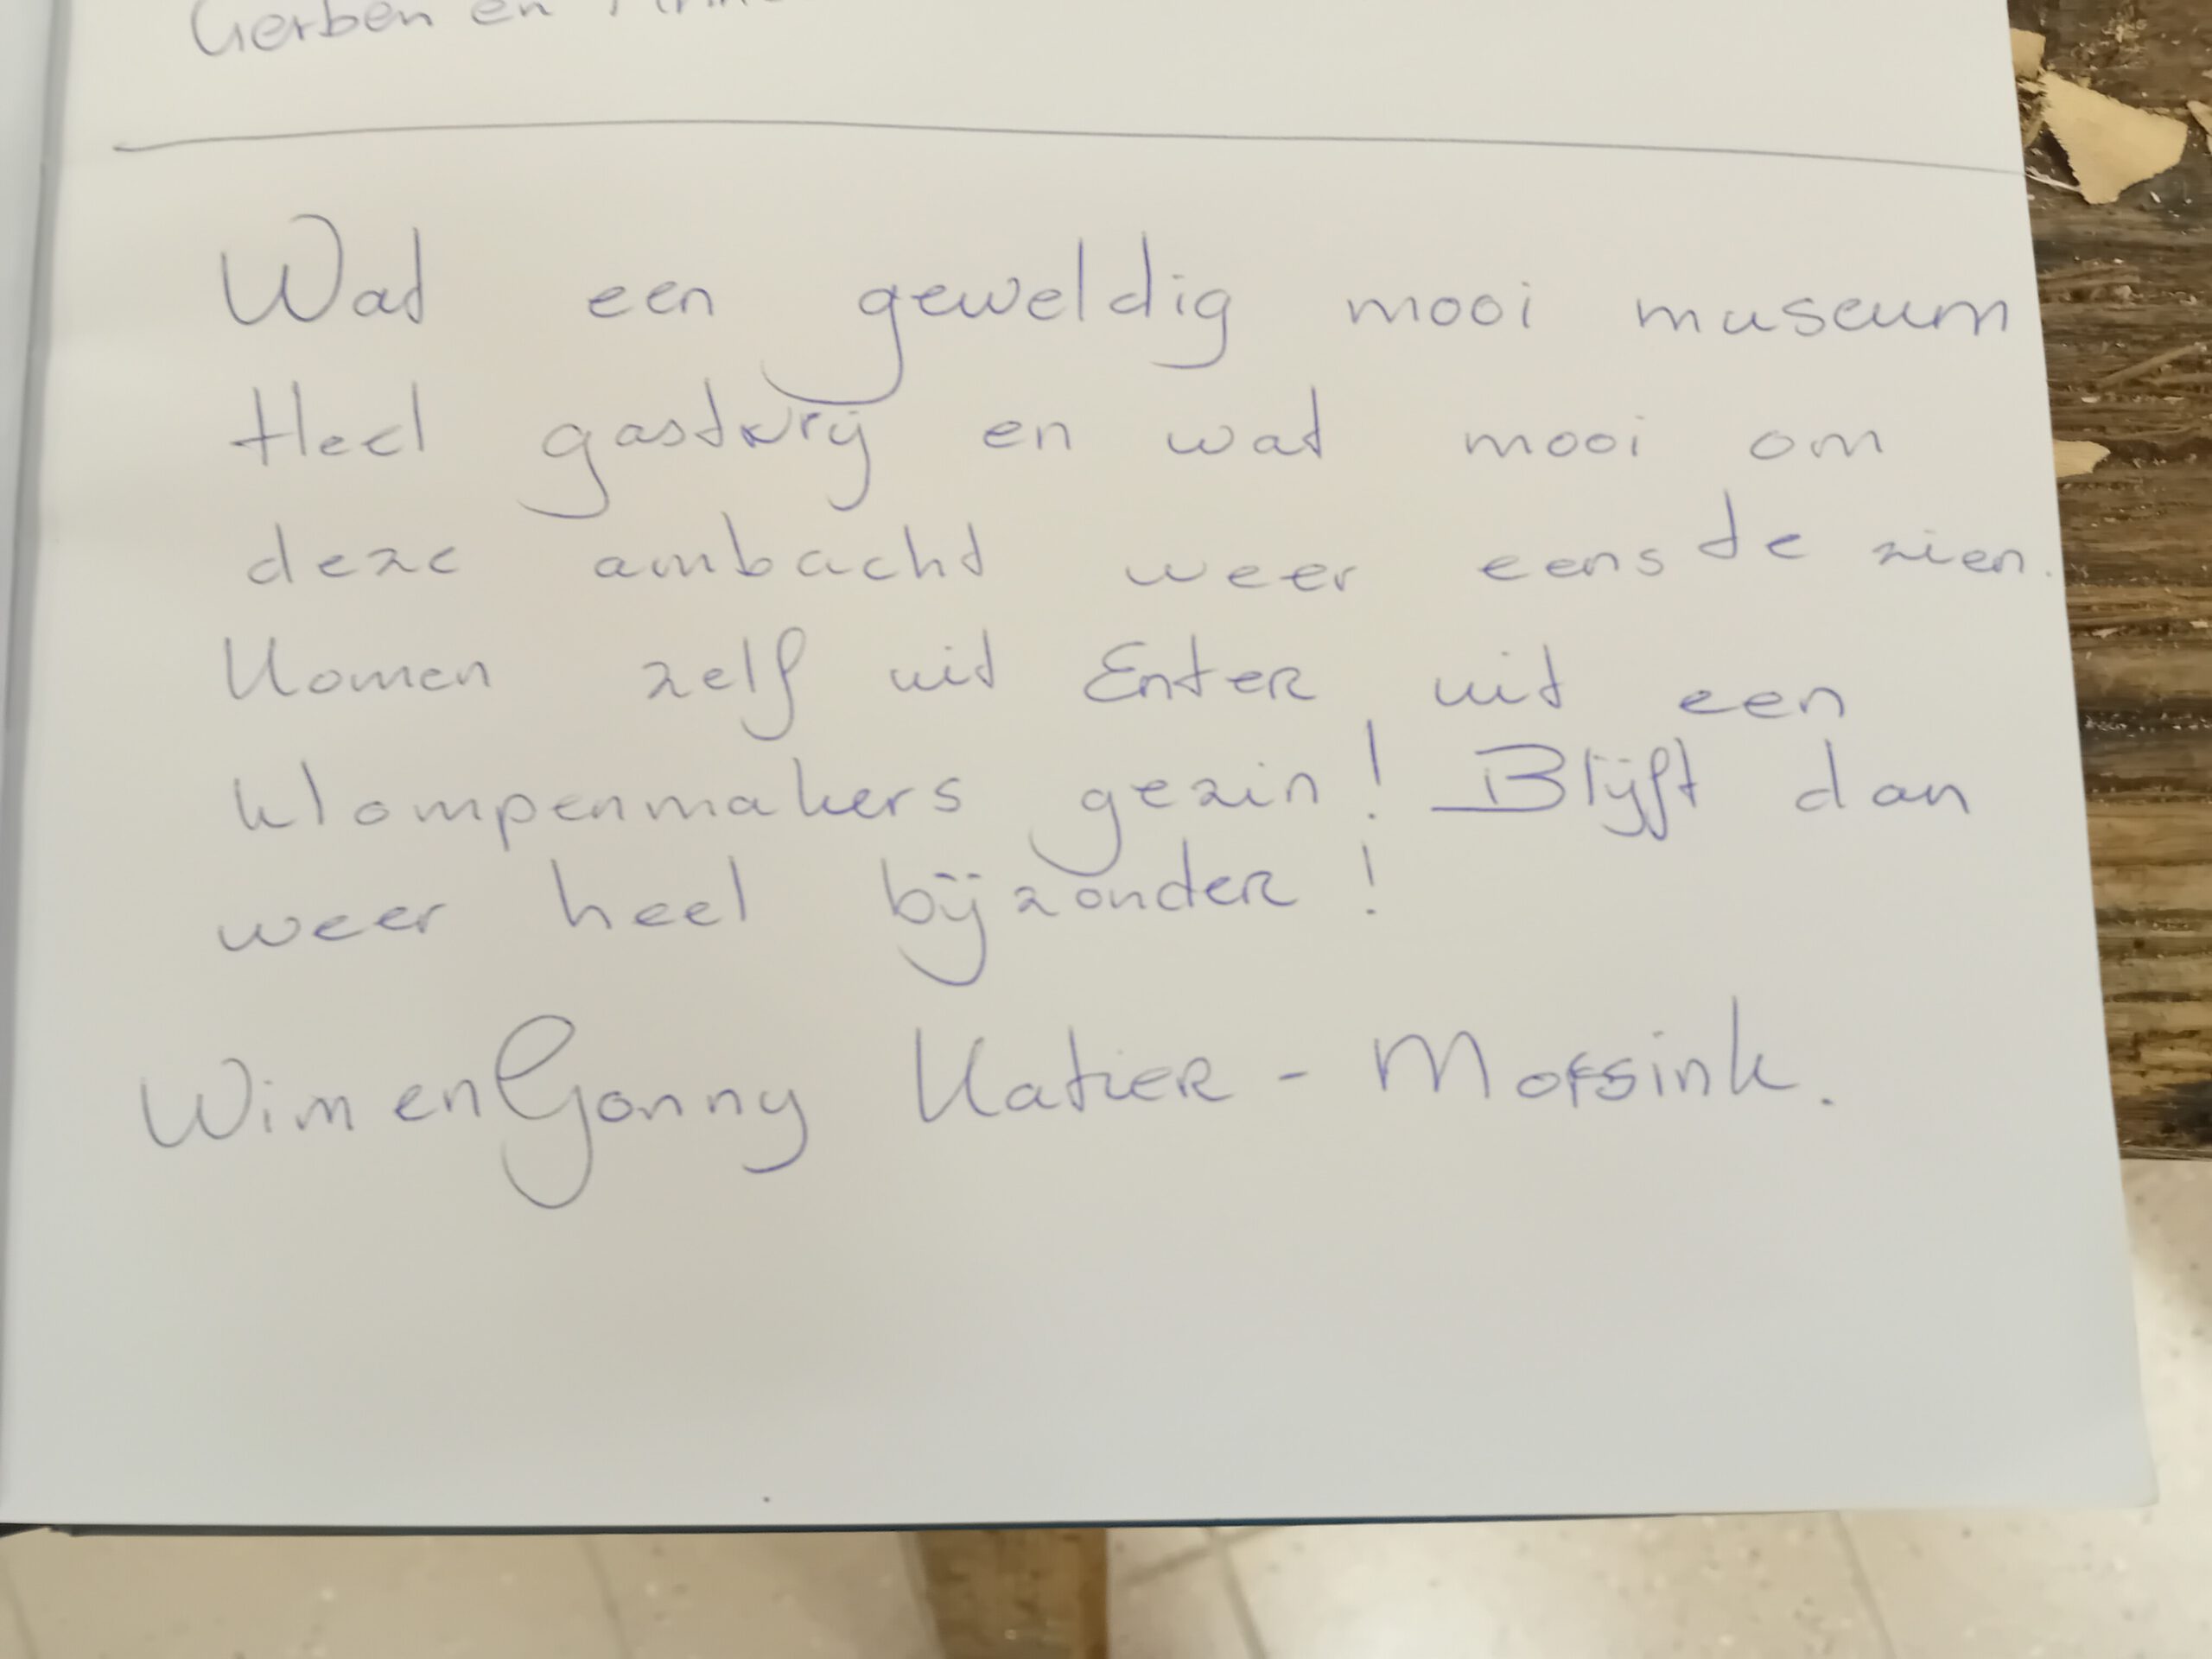 Gerben en
Wat een geweldig mooi museum
Heel gastvrij en wat mooi om
deze ambacht weer eens te zien.
Komen zelf uit Enter uit een
klompenmakers gezin! Blijft dan
weer heel bijzonder!
Wim en Gonny Katier - Mossink.